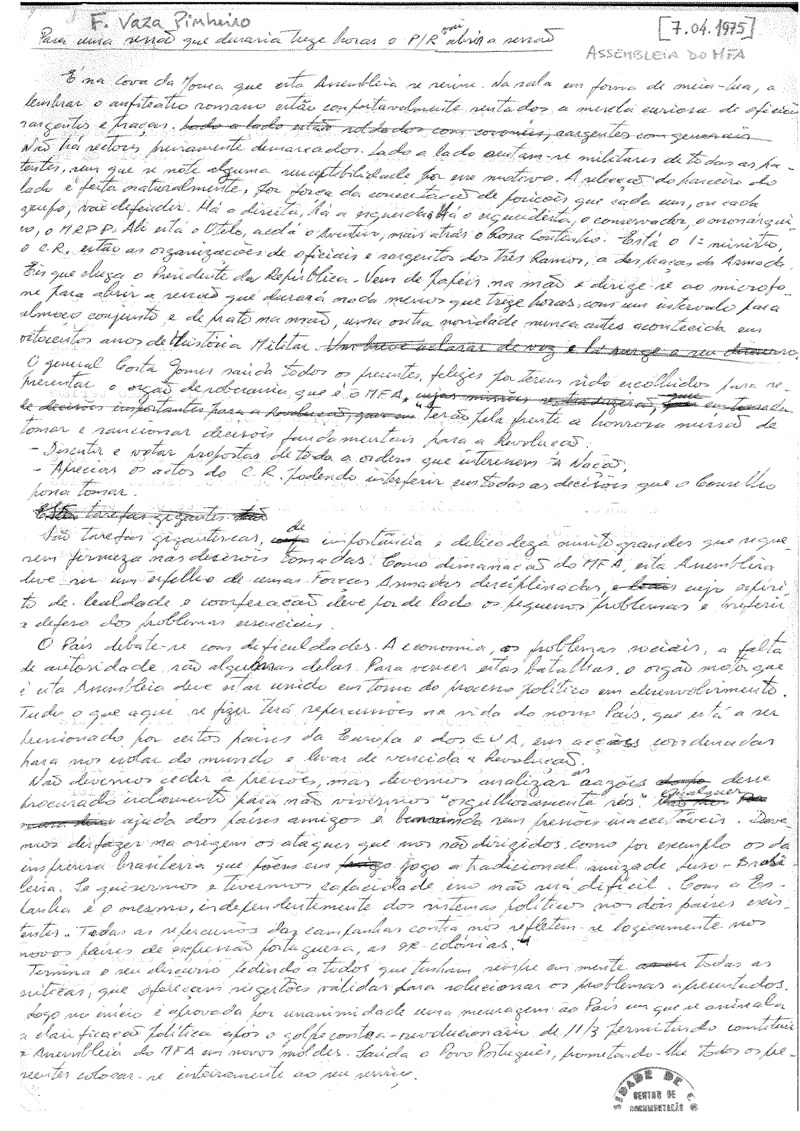 F. Vaza Pinheiro
[7.04.1975]
ASSEMBLEIA DO MFA
Para uma sessão que duraria treze horas o P/R abria a sessão
É na Cova da Moura que esta Assembleia se reune. Na sala em forma de meia-lua, a
lembrar o anfiteatro romano estão confortavelmente sentados, a mescla curiosa de oficiais
sargentos e praças. Lado a lado estão soldados com coroneis, sargentos com generais
Não há sectores previamente demarcados. Lado a lado sentam-se militares de todas as pa-
tentes, sem que se note alguma susceptibilidade por esse motivo. A selecção do parceiro do
lado é feita naturalmente, por força da concertação de posicois que cada um, ou cada
grupo, vai defender. Há a direita, há a esquerda. Há o esquerdista, o conservador, o monarqui-
co, o MRPP. Ali está o Otelo, acolá o mais atrás o Rosa Coutinho. Está o 1º ministro,
o C.R. estão as organizações de oficiais e sargentos dos Três Ramos, a das praças da Armada.
Eis que chega o Presidente da República. Vem de papeis na mão e dirige-se ao microfo-
ne para abrir a sessão que durará nada menos que treze horas, com um intervalo para
almoço conjunto e de prato na mão, uma outra novidade nunca antes acontecida em
oitocentos anos de História Militar. Um breve aclarar de voz e lá surge o seu discurso.
O general Costa Gomes saúda todos os presentes, felizes por terem sido escolhidos para re-
presentar o orgão de soberania que é o MFA, cujas missões se traduzirão, que em tomada
de decisões importantes para a Revolução, que terão pela frente a honrosa missão de
tomar e sancionar decisois fundamentais para a Revolução:
- Discutir e votar propostas de toda a ordem que interessem à Nação.
- Apreciar os actos do C.R. podendo interferir em todas as decisois que o Conselho
possa tomar.
Estas tarefas gigantes são
São tarefas gigantescas, de importância e delicadeza muito grandes que reque-
rem firmeza nas decisois tomadas. Como dimanação do MFA, esta Assembleia
deve ser um espelho de umas Forças Armadas disciplinadas, cujo espiri-
to de lealdade e cooperação deve por de lado os pequenos problemas e preferir
a defesa dos problemas essenciais.
O País debate-se com dificuldades. A economia, os problemas sociais, a falta
de autoridade são algumas delas. Para vencer estas batalhas, o orgão motor que
é esta Assembleia deve estar unido em torno do processo político em desenvolvimento.
Tudo o que aqui se fizer terá repercussões na vida do nosso País, que está a ser
pressionado por certos países da Europa e dos EUA, em acções coordenadas
para nos isolar do mundo e levar de vencida a Revolução.
Não devemos ceder a pressões, mas devemos analizar as razões deste
procurado isolamento para não vivermos "orgulhosamente sós". Qualquer
ajuda dos países amigos é benvinda sem pressões inaceitáveis. Deve-
mos desfazer na origem os ataques que nos são dirigidos, como por exemplo os da
imprensa brasileira que põem em jogo a tradicional amizade Luso-Brasi-
leira. Se quisermos e tivermos capacidade isso não será difícil. Com a Es-
panha é o mesmo, independentemente dos sistemas políticos nos dois países exis-
tentes. Todas as repercussões das campanhas contra nós refletem-se logicamente nos
novos países de expressão portuguesa, as ex-colonias.
Termina o seu discurso pedindo a todos que tenham sempre em mente todas as
críticas, que ofereçam sugestões válidas para solucionar os problemas apresentados.
Logo no inicio é aprovada por unanimidade uma mensagem ao País em que se assinala
a clarificação política após o golpe contra-revolucionario de 11/3 permitindo constituir
a Assembleia do MFA em novos moldes. Saúda o Povo Português, prometendo-lhe todos os pre-
sentes colocar-se inteiramente ao seu serviço.
SIDADE DE CO
CENTRO DE
DOCUMENTAÇÃO